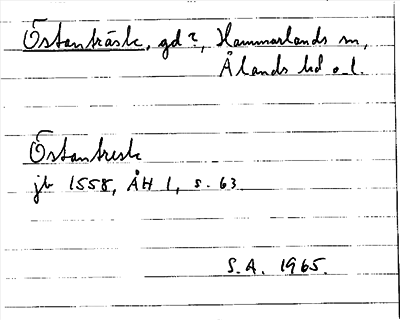 Östanträsk, gd?, Hammarlands sn,
Ålands hd o. l.
Östantresk
jb 1558, ÅH 1, s. 63
S.A. 1965.